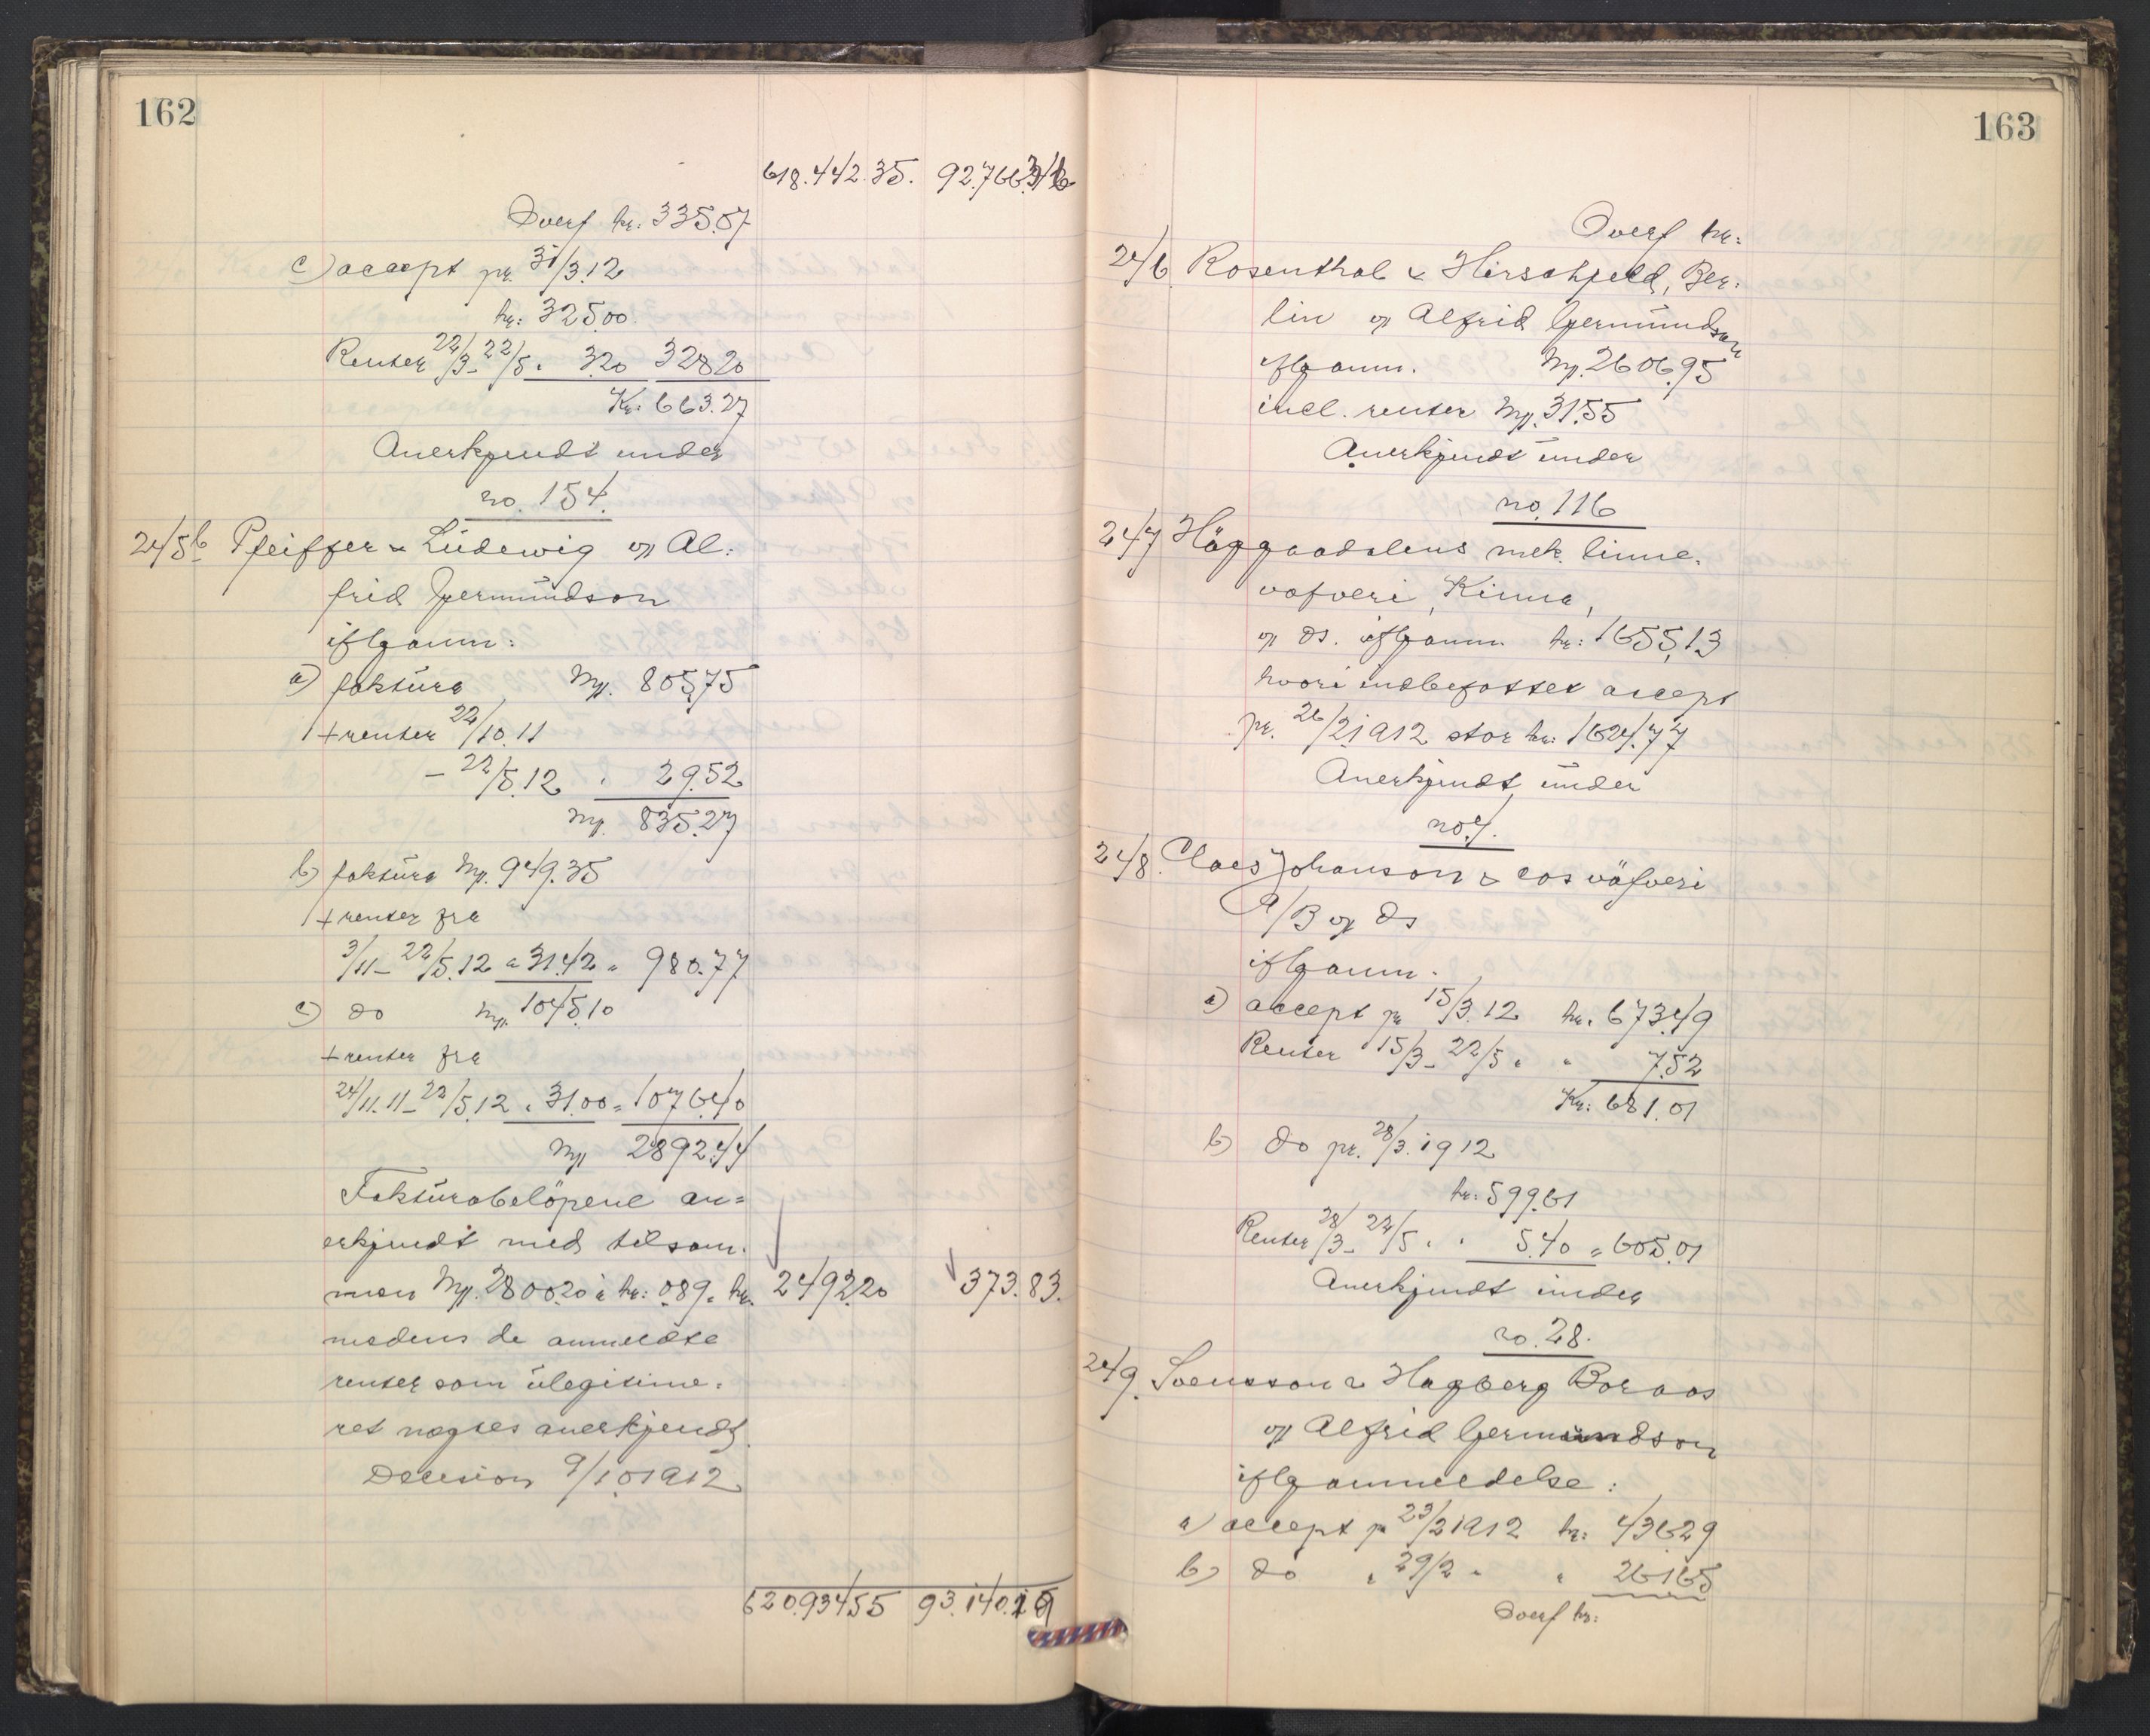 162
618.442.35. 92.766.36
Overf kr: 335.07
c) accept pr. 31/3.12
kr: 325.00
Renter 22/3 - 22/5 " 3.20 328.20
Kr: 663.27
Anerkjendt under
no. 154.
245b Pfeiffer & Lüdewig og Al-
frid Germündson
iflg anm:
a) faktüra Mk. 805.75
+ renter 22/10.11
- 22/5.12 " 29.52
Mk. 835.27
b) faktüra Mk. 949.35
+ renter fra
3/11 - 22/5.12 " 31.42 = 980.77
c) do Mk. 1045.10
+ renter fra
24/11.11 - 22/5.12 " 31.00 = 1076.40
Mk 2892.44
Faktürabelöpene an=
erkjendt med tilsam-
men Mk. 2800.20 à kr: 0.89 = kr. 2492.20 373.83.
medens de anmeldte
renter som ülegitime-
ret nægtes anerkjendt.
Decision 9/10 1912
620.934.55 93.140.19
163
Overf kr:
246 Rosenthal & Hirschfeld, Ber-
lin og Alfrid Germündson
iflg anm. Mk. 2606.95
incl. renter Mk. 31.55
Anerkjendt ünder
no. 116
247 Häggaadalens mek. linne-
vafveri, Kinna,
og ds. iflg anm kr: 1655,13
hvori indbefattet accept
pr. 26/2 1912 stor kr: 1624.77
Anerkjendt ünder
no 4.
248. Claes Johanson & cos väfveri
A/B og ds
iflg anm.
a) accept pr 15/3.12 kr. 673.49
Renter 15/3 - 22/5 " " 7.52
Kr: 681.01
b) do pr. 28/3. 1912
kr: 599.61
Renter 28/3 - 22/5 " " 5.40 = 605.01
Anerkjendt ünder
no. 28.
249. Svensson & Hagberg Boraas
og Alfrid Germündson
iflg anmeldelse:
a) accept pr 23/2 1912 kr: 436.29
b) do " 29/2 " " 261.65
Overf kr: